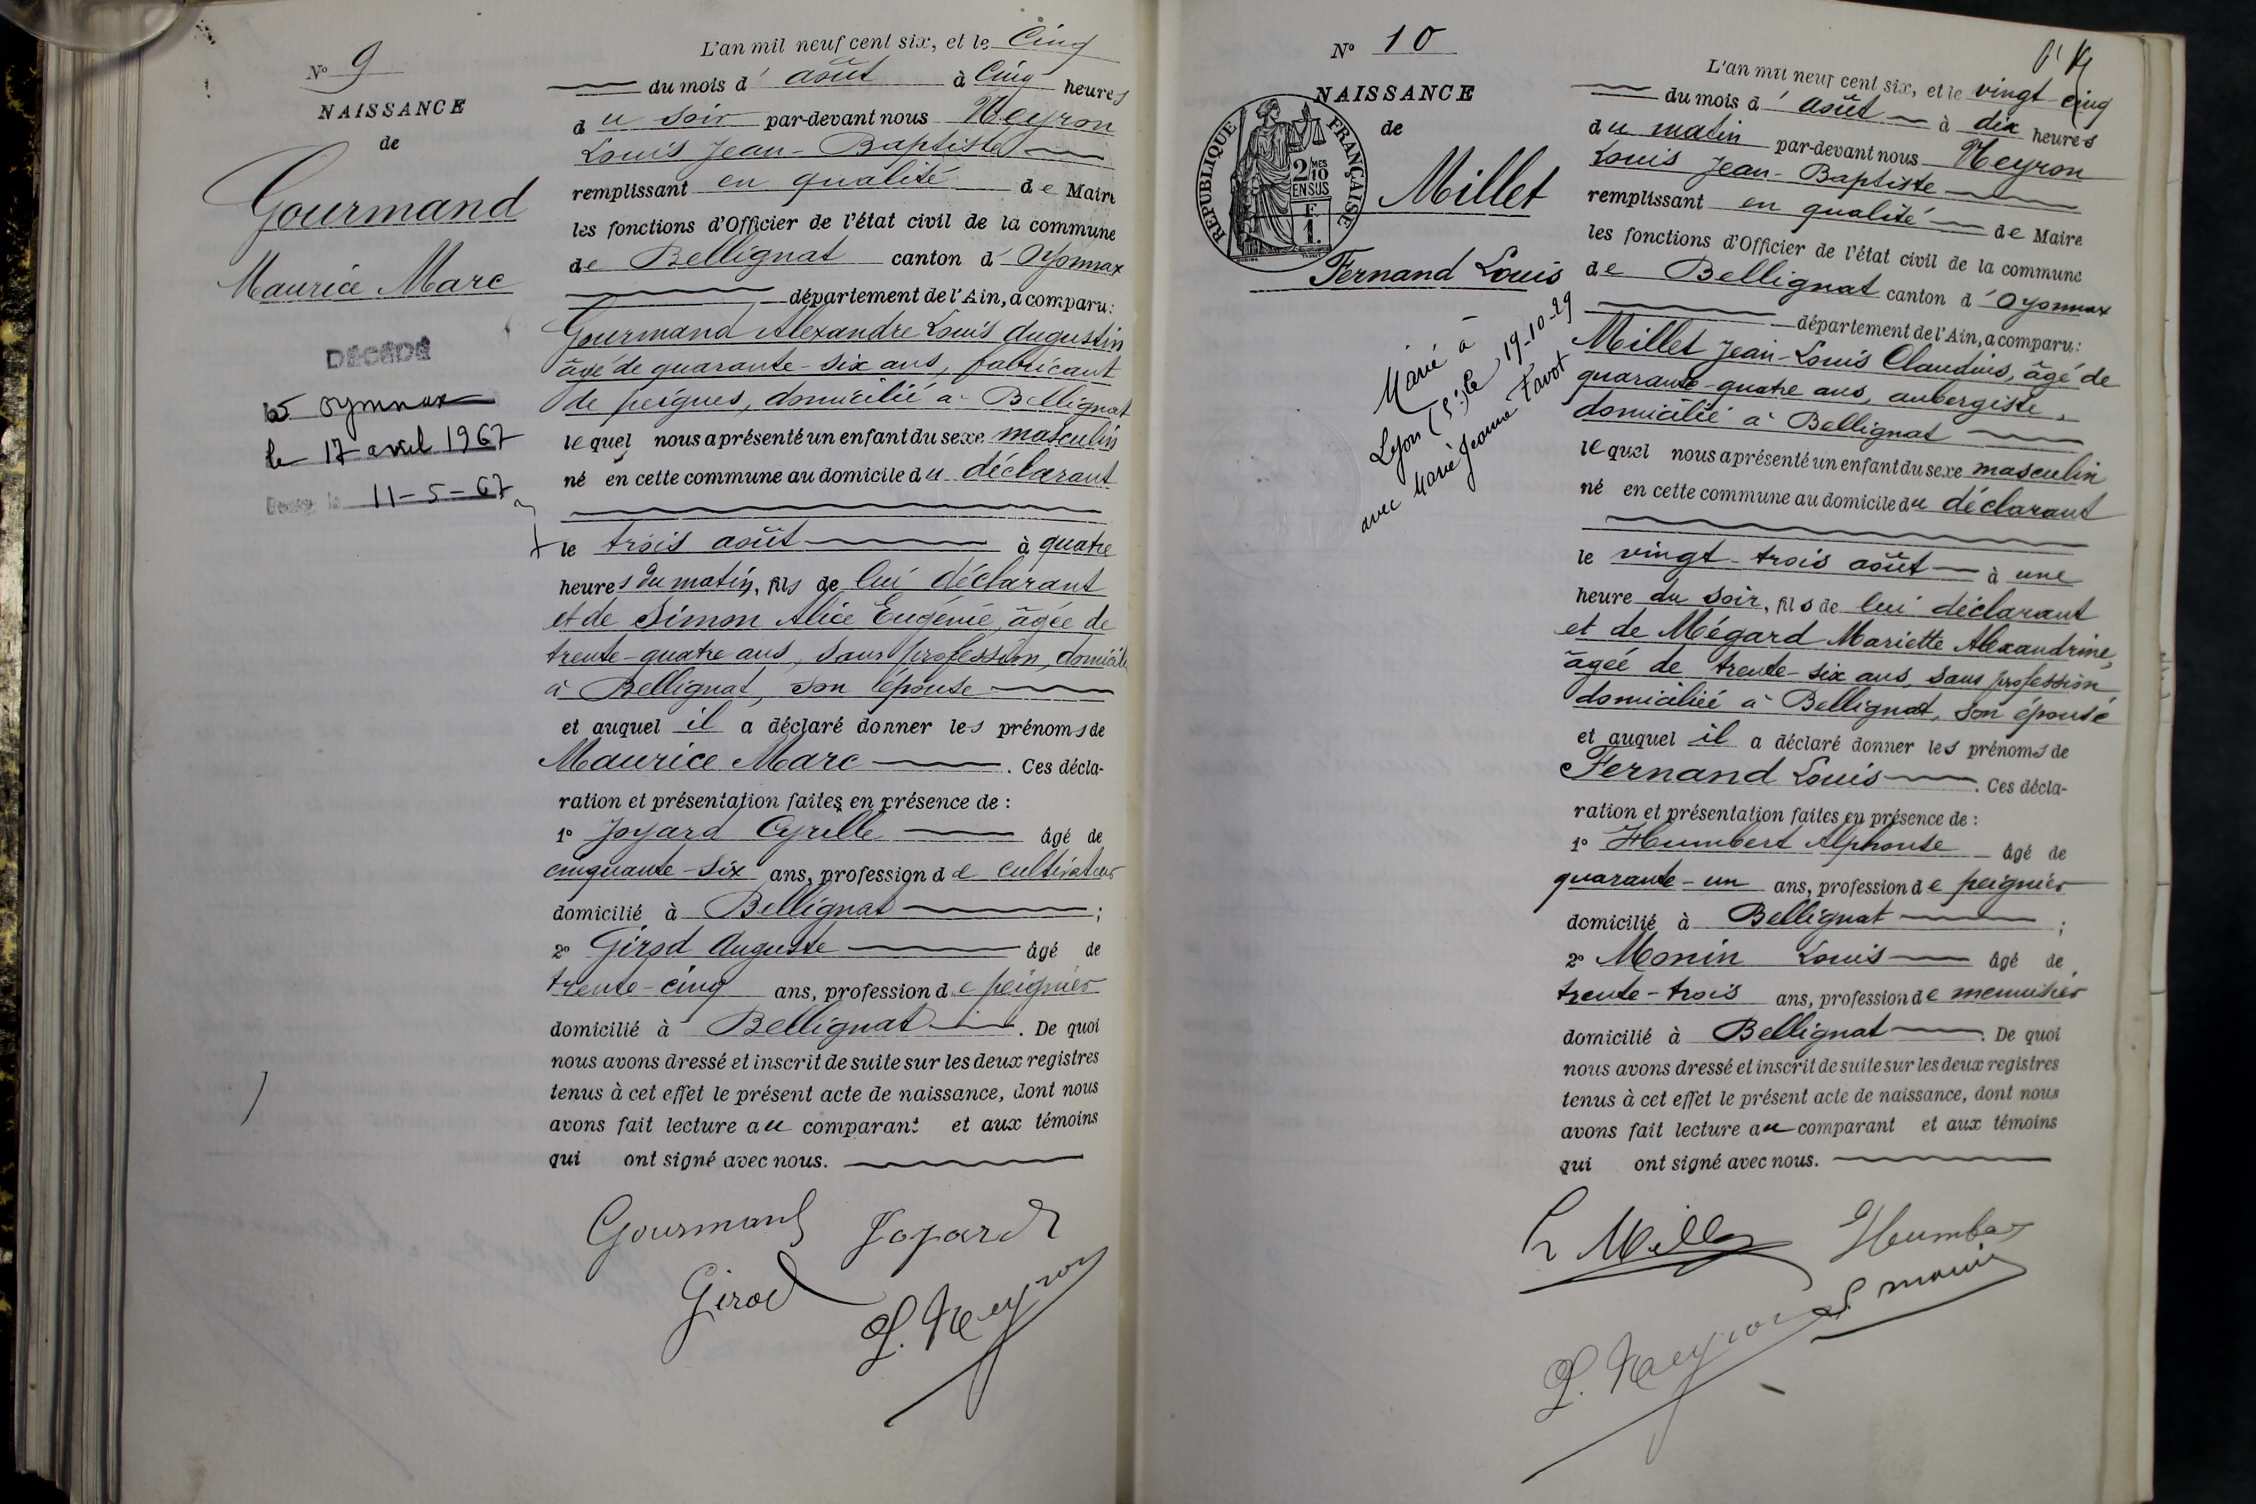 N° 9
NAISSANCE
de
Gourmand
Maurice Marc
DÉCÉDÉ
à Oyonnax
le 17 avril 1967
le 11-5-67
L'an mil neuf cent six, et le Cinq
du mois d' août à Cinq heures
du soir par-devant nous Neyron
Louis Jean-Baptiste
remplissant en qualité de Maire
les fonctions d'Officier de l'état civil de la commune
de Bellignat canton d' Oyonnax
département de l'Ain, a comparu:
Gourmand Alexandre Louis Augustin
âgé de quarante-six ans, fabricant
de peignes, domicilié à Bellignat
lequel nous a présenté un enfant du sexe masculin
né en cette commune au domicile du déclarant
le trois août à quatre
heures du matin, fils de lui déclarant
et de Simon Alice Eugénie, âgée de
trente-quatre ans, sans profession, domicile
à Bellignat, son épouse
et auquel il a déclaré donner les prénoms de
Maurice Marc. Ces décla-
ration et présentation faites en présence de :
1° Joyard Cyrille âgé de
cinquante-six ans, profession de cultivateur
domicilié à Bellignat ;
2° Girod Auguste âgé de
trente-cinq ans, profession de peignier
domicilié à Bellignat. De quoi
nous avons dressé et inscrit de suite sur les deux registres
tenus à cet effet le présent acte de naissance, dont nous
avons fait lecture au comparant et aux témoins
qui ont signé avec nous.
Gourmand Joyard
Girod
L. Neyron
N° 10
NAISSANCE
de
RÉPUBLIQUE FRANÇAISE
2 MES
/10
EN SUS
F.
1.
Millet
Fernand Louis
Marié à
Lyon (5e) le 19-10-29
avec Marie Jeanne Favot
L'an mil neuf cent six, et le vingt-cinq
du mois d' août à dix heures
du matin par-devant nous Neyron
Louis Jean-Baptiste
remplissant en qualité de Maire
les fonctions d'Officier de l'état civil de la commune
de Bellignat canton d' Oyonnax
département de l'Ain, a comparu:
Millet Jean-Louis Claudius, âgé de
quarante-quatre ans, aubergiste,
domicilié à Bellignat
lequel nous a présenté un enfant du sexe masculin
né en cette commune au domicile du déclarant
le vingt-trois août à une
heure du soir, fils de lui déclarant
et de Mégard Mariette Alexandrine,
âgée de trente-six ans, sans profession
domiciliée à Bellignat, son épouse
et auquel il a déclaré donner les prénoms de
Fernand Louis. Ces décla-
ration et présentation faites en présence de :
1° Humbert Alphonse âgé de
quarante-un ans, profession de peignier
domicilié à Bellignat ;
2° Monin Louis âgé de
trente-trois ans, profession de menuisier
domicilié à Bellignat. De quoi
nous avons dressé et inscrit de suite sur les deux registres
tenus à cet effet le présent acte de naissance, dont nous
avons fait lecture au comparant et aux témoins
qui ont signé avec nous.
L Millet Humbert
L Monin
L. Neyron